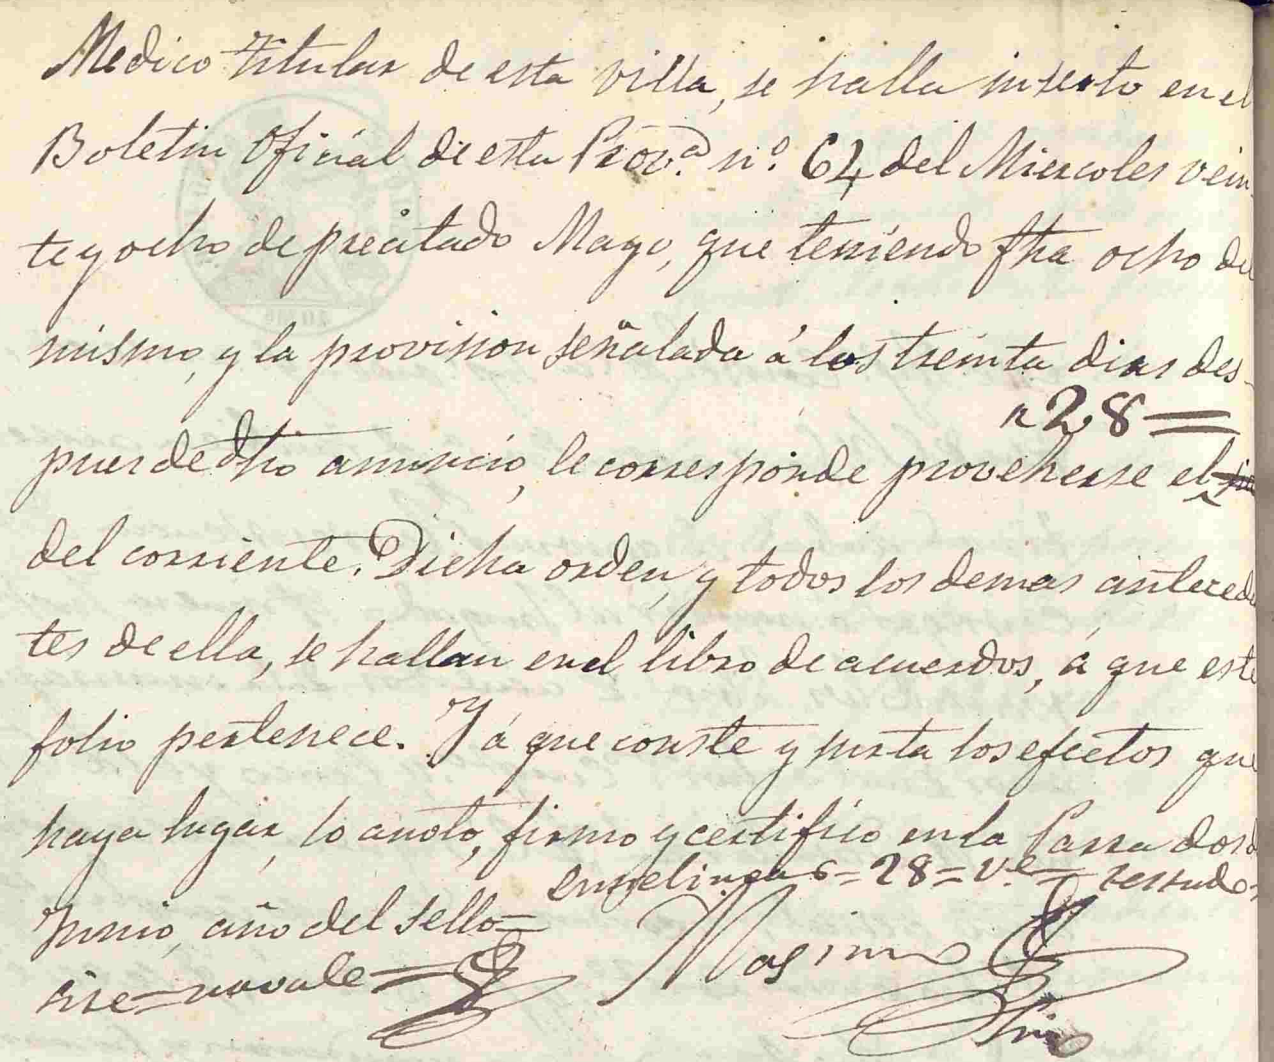 Medico titular de esta villa, se halla inserto en el
Boletin Oficial de esta Prov.ª n.º 64 del Miercoles vein-
te y ocho de precitado Mayo, que teniendo fha ocho de
mismo, y la provision señalada á los treinta dias des-
a 28=
pues de dho anuncio, le corresponde proveherse el
del corriente. Dicha orden, y todos los demas anteceden
tes de ella, se hallan en el libro de acuerdos, á que este
folio pertenece. Y á que conste y surta los efectos que
haya lugar, lo anoto, firmo y certifico en la Parra dos de
entrelineas = 28 = V.e = testado =
Junio, año del sello =
no vale =
Masimo